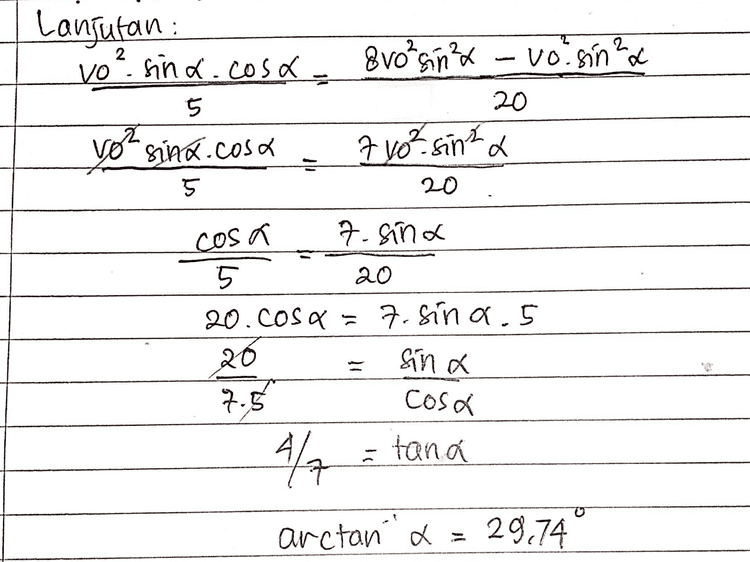 Lanjutan :
vo² · sin α · cos α / 5 = 8vo² sin²α − vo² · sin²α / 20
vo² sin α · cos α / 5 = 7 vo² · sin² α / 20
cos α / 5 = 7 · sin α / 20
20 · cos α = 7 · sin α · 5
20 / 7.5 = sin α / cos α
4/7 = tan α
arctan⁻¹ α = 29,74°